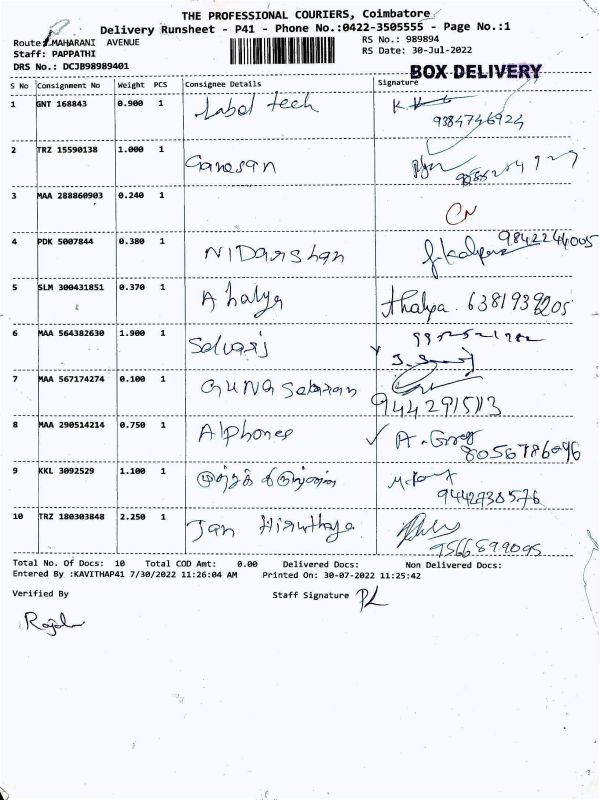 THE PROFESSIONAL COURIERS, Coimbatore
Delivery Runsheet - P41 - Phone No.:0422-3505555 - Page No.:1
Route: MAHARANI AVENUE RS No.: 989894
Staff: PAPPATHI RS Date: 30-Jul-2022
DRS No.: DCJB98989401
BOX DELIVERY
S No Consignment No Weight PCS Consignee Details Signature
1 GNT 168843 0.900 1 Label tech
9384746924
2 TRZ 15590138 1.000 1 Ganesan
3 MAA 288860903 0.240 1 CN
4 PDK 5007844 0.380 1 NIDarshan 9842244005
5 SLM 300431851 0.370 1 Ahalya Ahalya. 6381939205
6 MAA 564382630 1.900 1 Selvaraj
7 MAA 567174274 0.100 1 GUNA Sekaran
9442915113
8 MAA 290514214 0.750 1 Alphones
8056786096
9 KKL 3092529 1.100 1
9442938576
10 TRZ 180303848 2.250 1 Jan Hiruthaya
9566899095
Total No. Of Docs: 10 Total COD Amt: 0.00 Delivered Docs: Non Delivered Docs:
Entered By :KAVITHAP41 7/30/2022 11:26:04 AM Printed On: 30-07-2022 11:25:42
Verified By Staff Signature